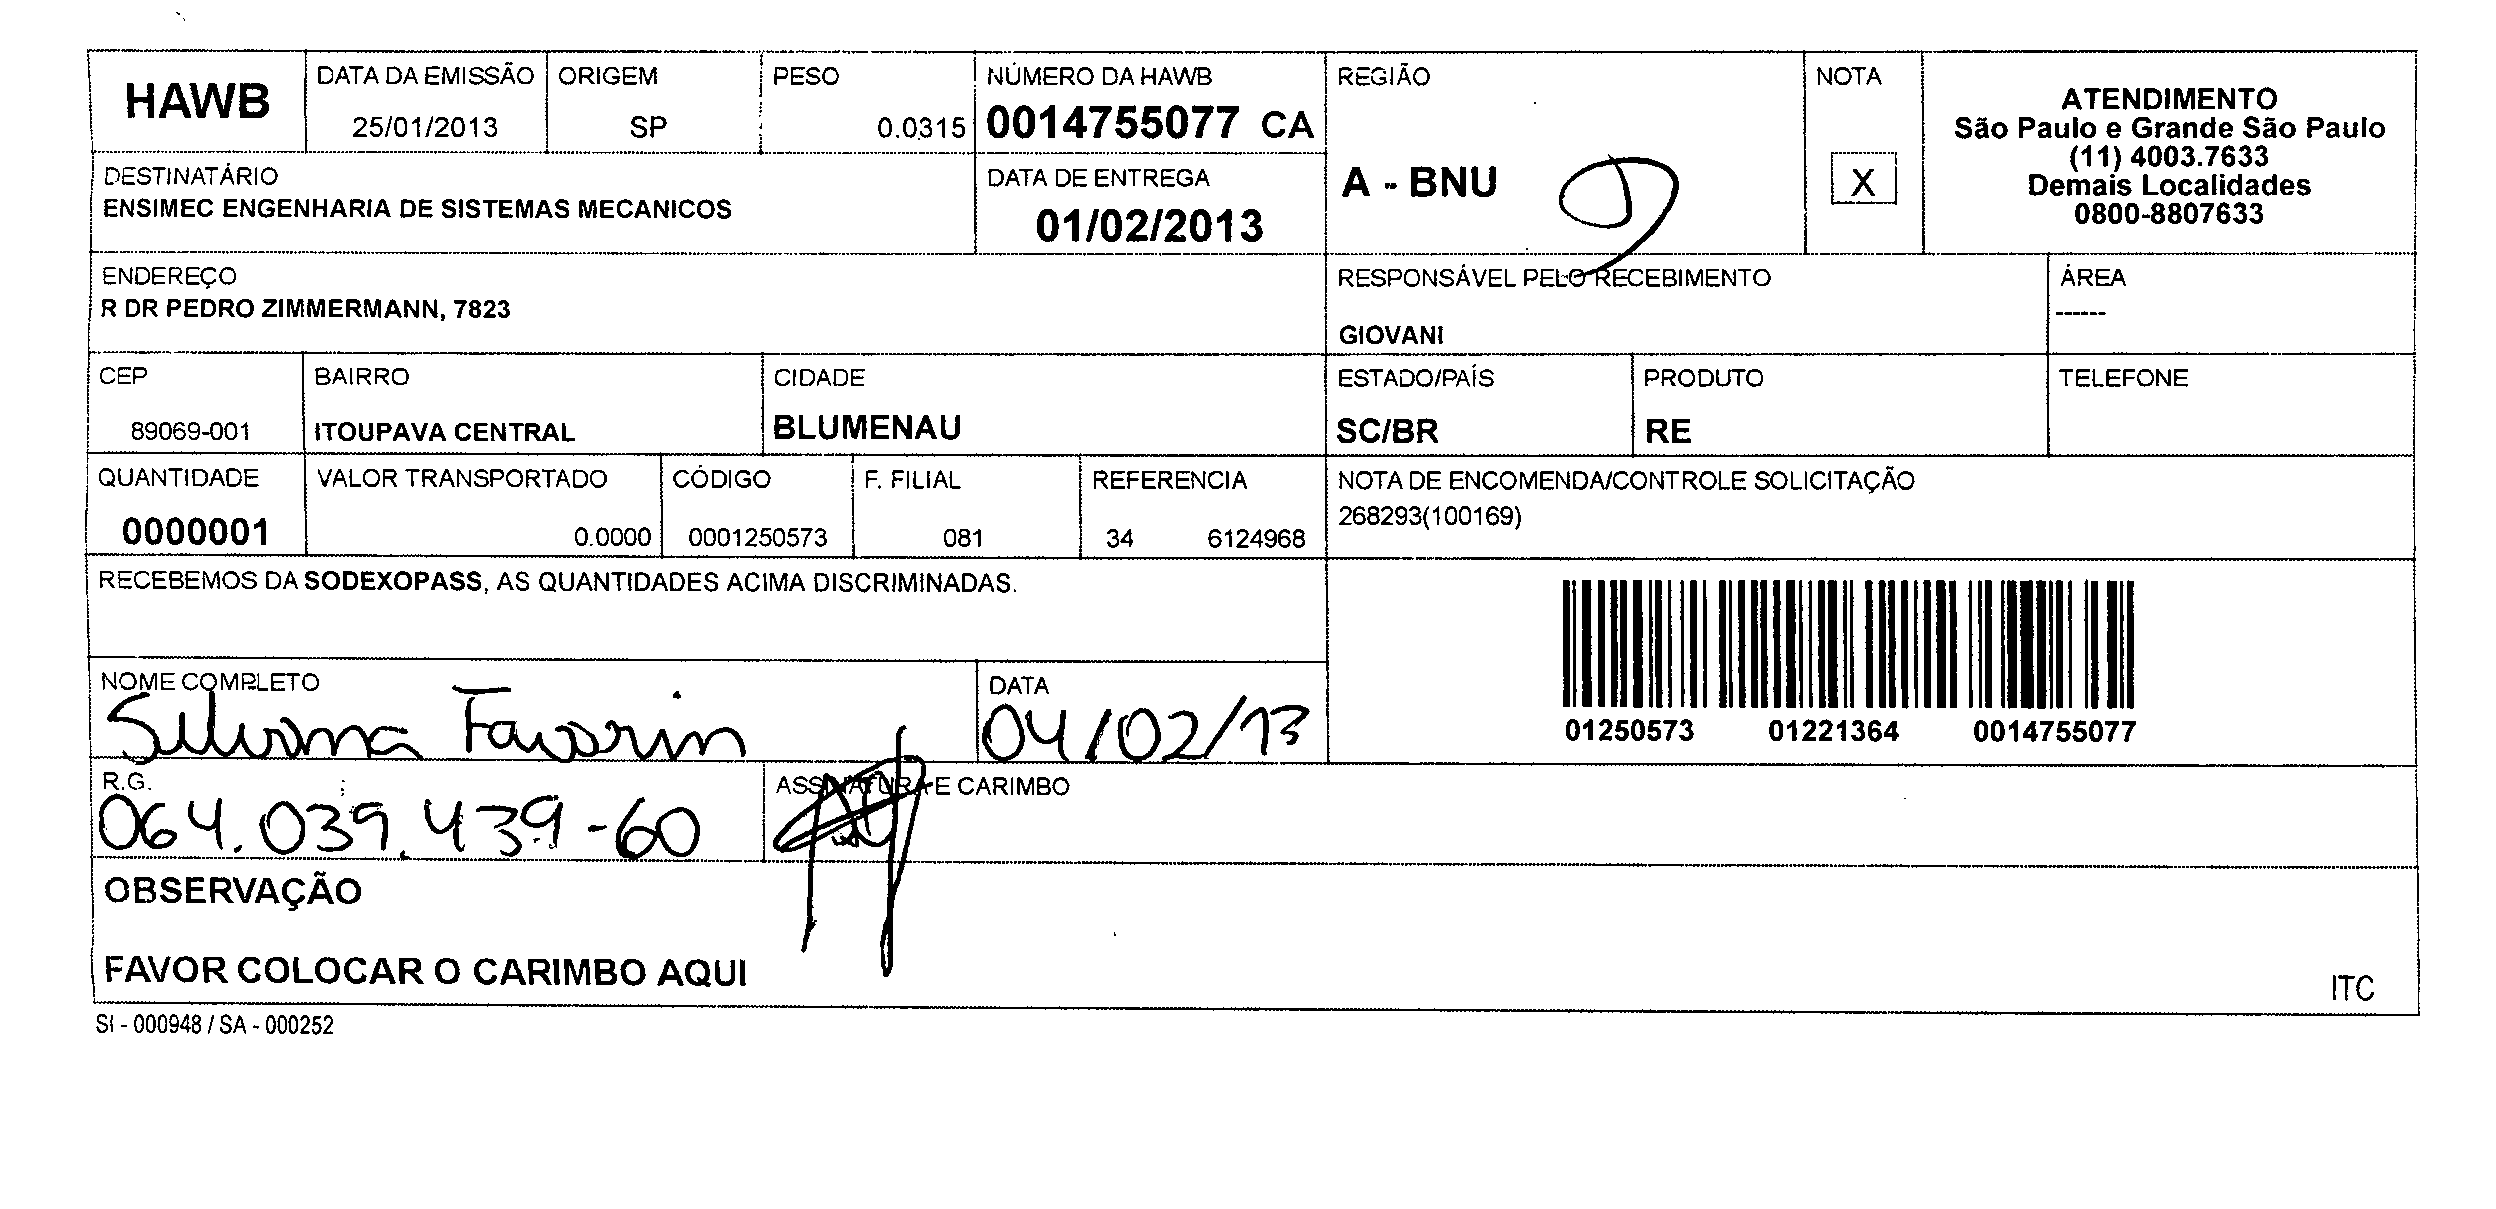 HAWB
DATA DA EMISSÃO
25/01/2013
ORIGEM
SP
PESO
0.0315
NÚMERO DA HAWB
0014755077 CA
REGIÃO
A - BNU
NOTA
X
ATENDIMENTO
São Paulo e Grande São Paulo
(11) 4003.7633
Demais Localidades
0800-8807633
DESTINATÁRIO
ENSIMEC ENGENHARIA DE SISTEMAS MECANICOS
DATA DE ENTREGA
01/02/2013
ENDEREÇO
R DR PEDRO ZIMMERMANN, 7823
RESPONSÁVEL PELO RECEBIMENTO
GIOVANI
ÁREA
------
CEP
89069-001
BAIRRO
ITOUPAVA CENTRAL
CIDADE
BLUMENAU
ESTADO/PAÍS
SC/BR
PRODUTO
RE
TELEFONE
QUANTIDADE
0000001
VALOR TRANSPORTADO
0.0000
CÓDIGO
0001250573
F. FILIAL
081
REFERENCIA
34 6124968
NOTA DE ENCOMENDA/CONTROLE SOLICITAÇÃO
268293(100169)
RECEBEMOS DA SODEXOPASS, AS QUANTIDADES ACIMA DISCRIMINADAS.
01250573 01221364 0014755077
NOME COMPLETO
Silvana Favorin
DATA
04/02/13
R.G.
064.039.439-60
ASSINATURA E CARIMBO
OBSERVAÇÃO
FAVOR COLOCAR O CARIMBO AQUI
ITC
SI - 000948 / SA - 000252